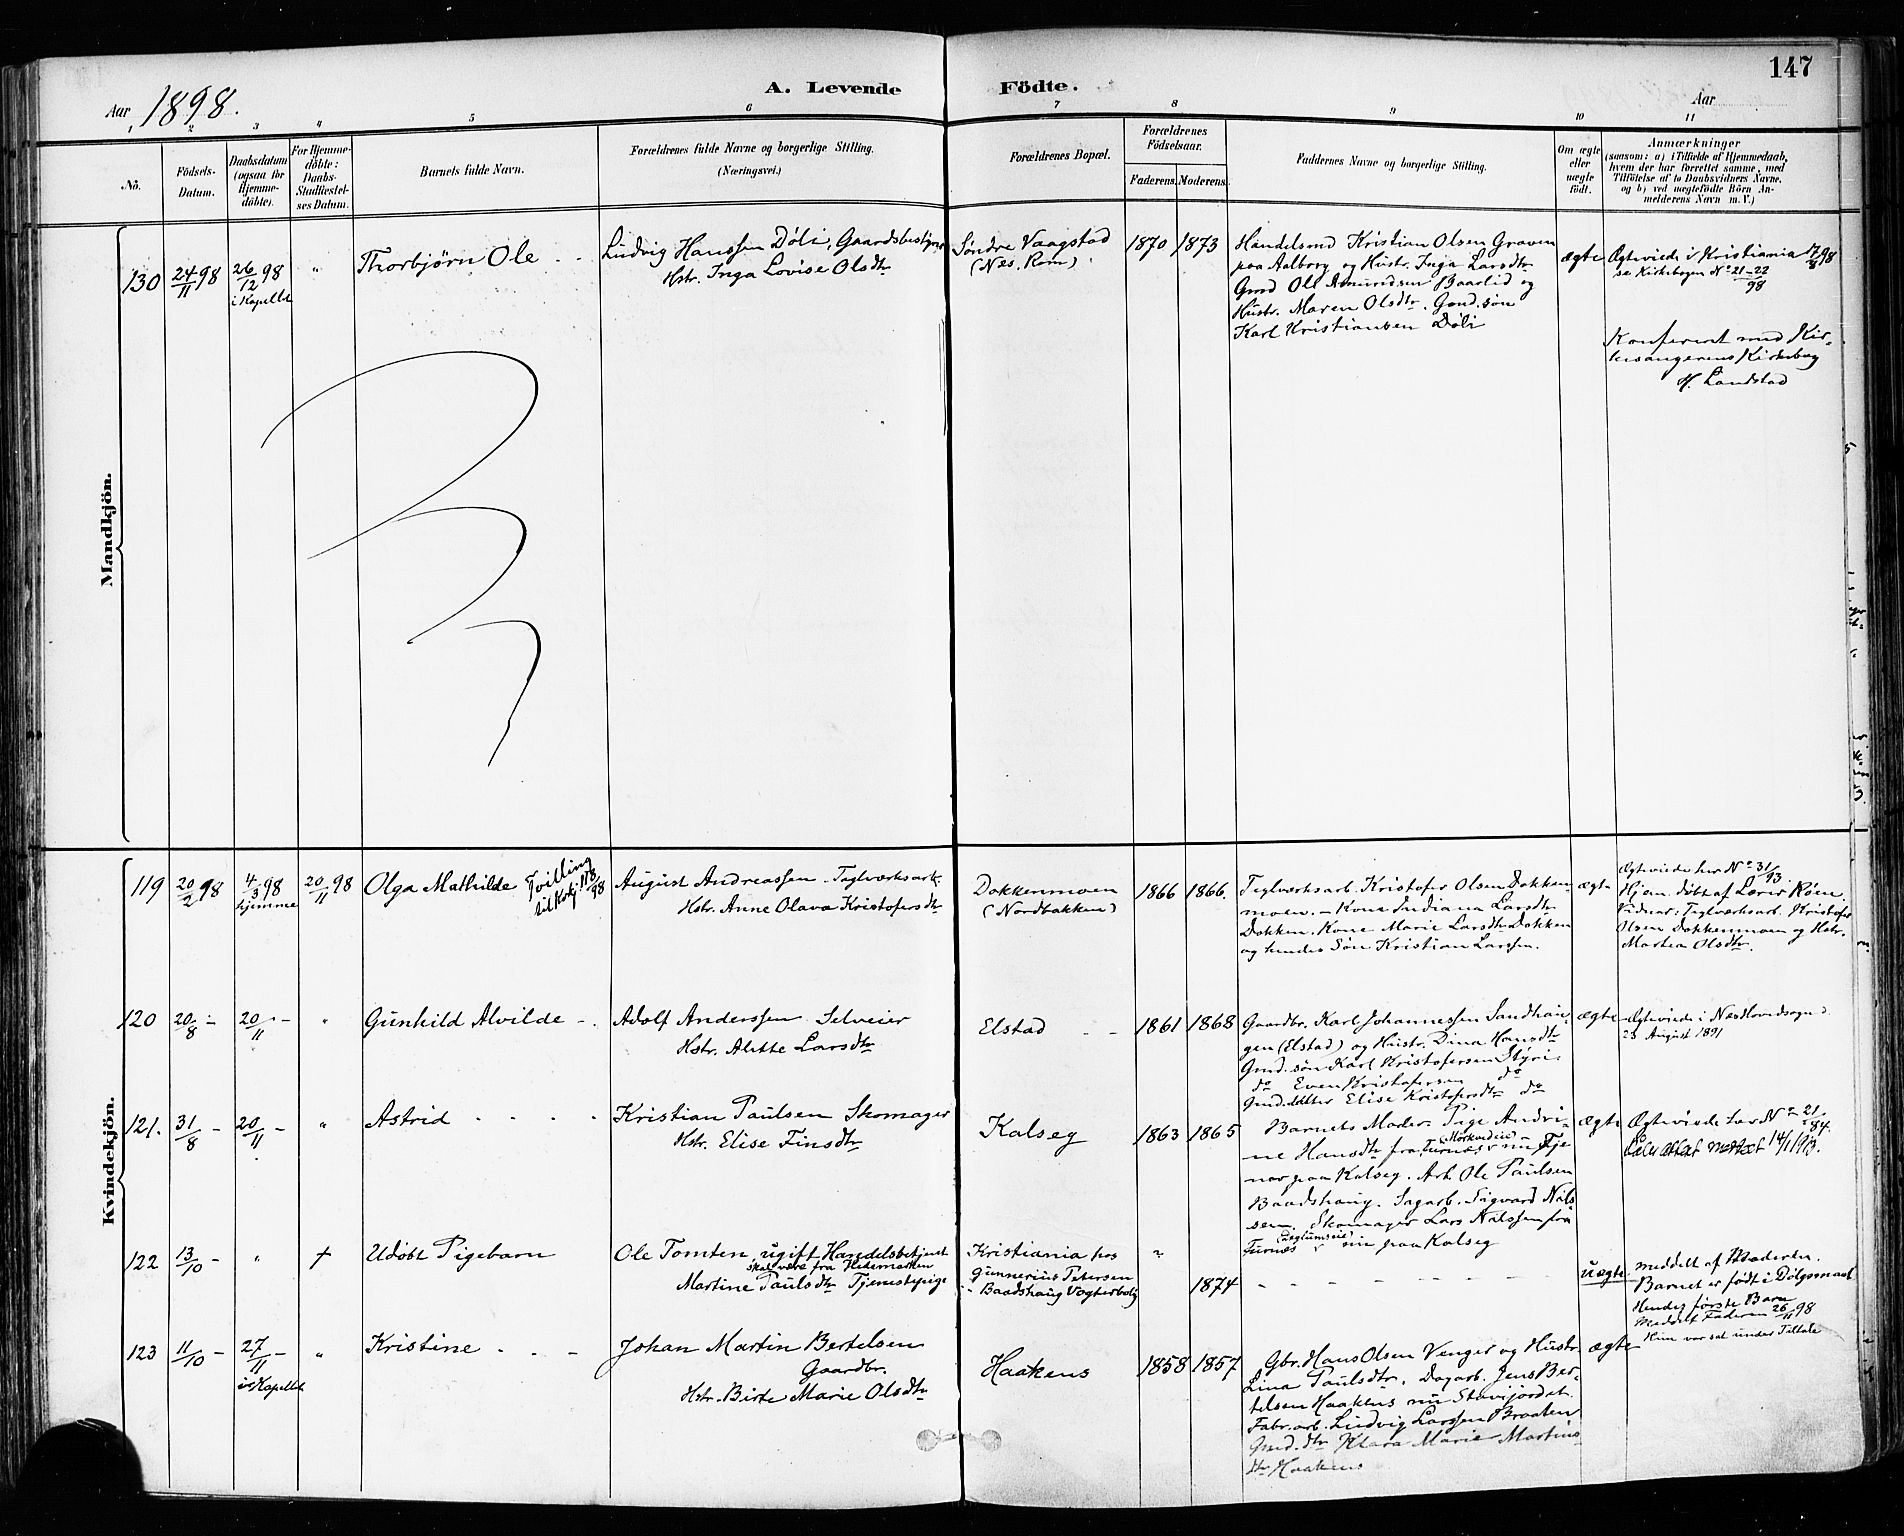 147
Aar 1898.
A. Levende Födte.
Aar
1 2 3 4 5 6 7 8 9 10 11
No.
Födsels-
Datum.
Daabsdatum
(ogsaa for
Hjemme-
döbte).
For Hjemme-
döbte:
Daabs-
Stadfæstel-
ses Datum.
Barnets fulde Navn.
Forældrenes fulde Navne og borgerlige Stilling.
(Næringsvei.)
Forældrenes Bopæl.
Forældrenes
Födselsaar.
Faderens. Moderens.
Faddernes Navne og borgerlige Stilling.
Om ægte
eller
uægte
født.
Anmærkninger
(saasom: a) i Tilfælde af Hjemmedaab,
hvem der har forrettet samme, med
Tilføielse af to Daabsvidners Navne,
og b) ved uægtefödte Börn An-
melderens Navn m. V.)
Mandkjön.
130
24/11 98
26/12 98
i Kapellet
"
Thorbjørn Ole - -
Ludvig Hanssen Döli, Gaardsbestyrer
Hstr. Inga Lovise Olsdtr
Søndre Vaagstad
(Nes. Rom)
1870 1873
Handelsmd Kristian Olsen Graven
paa Aalborg og Hustr. Inga Larsdtr
Gmd Ole Amundsen Baarlid og
Hustr. Maren Olsdtr. Gmd.søn
Karl Kristiansen Döli
ægte
Ægteviede i Kristiania 98
se Kirkebogen No 21-22/98
Konfereret med Kir-
kesangerens Kirkebog
H. Landstad
Kvindekjön.
119
20/2 98
4/3 98
hjemme
20/11 98
Olga Mathilde
Tvilling
til Kokj. 118/98
August Andreassen Teglværksark.
Hstr. Anne Olava Kristofersdtr
Dokkenmoen
(Nordbakken)
1866 1866.
Teglværksarb. Kristofer Olsen Dokken
moen. - Kone Indiana Larsdtr
Dokken. Kone Marie Larsdtr Dokken
og hendes Søn Kristian Larssen.
ægte
Ægteviede her No 31/93.
Hjem. døbt af Lærer Røen.
Vidner: Teglværksarb. Kristofer
Olsen Dokkenmoen og Hstr.
Martea Olsdtr.
120
20/8 -
20/11 -
"
Gunhild Alvilde - .
Adolf Anderssen Selveier
Hstr. Alette Larsdtr
Elstad - -
1861 1868
Gaardbr. Karl Johannessen Sandhau-
gen (Elstad) og Hustr. Dina Hansdtr
Gmd.søn Karl Kristofersen Styri
do Even Kristofersen do
Gmd.datter Elise Kristofersdtr do
ægte
Ægteviede i Nes Hovedsogn
23 August 1891
121.
31/8 -
20/11 -
"
Astrid - - - -
Kristian Paulsen Skomager
Hstr. Elise Finsdtr
Kalseg
1863 1865
Barnets Moder. Pige Andri-
ne Hansdtr fra Furnes nu Tje
ner paa Kalseg. Arb. Ole Paulsen
Baadshaug. Sagarb. Sigvard Nils-
sen. Skomager Lars Nilssen fra
Furnes nu paa Kalseg
ægte
Ægteviede her No 21/84.
14/1 1913.
122
13/10 -
"
†
Udøbt Pigebarn
Ole Tomten, ugift Handelsbetjent
skal være fra Hedemarken
Martine Paulsdtr Tjenestepige
Kristiania hos
Gunnerius Petersen
- Baadshaug Vogterbolig
"
1874
- - - - - - - -
uægte
Meddelt af Moderen.
Barnet er født i Dølgsmaal
Hendes første Barn
Meddelt Faderen 26/11 98
Hun var sat under Tiltale
123
11/10 -
27/11 -
i Kapellet
"
Kristine - - -
Johan Martin Bertelsen
Gaardbr.
Hstr. Birte Marie Olsdtr
Haakens
1858 1857
Gbr. Hans Olsen Venger og Hustr
Lina Paulsdtr. Dagarb. Jens Ber-
telsen Haakens nu Stavijordet.
Fabr.arb. Ludvig Larssen Braaten
Gmd.dtr Klara Marie Martins-
dtr Haakens
ægte